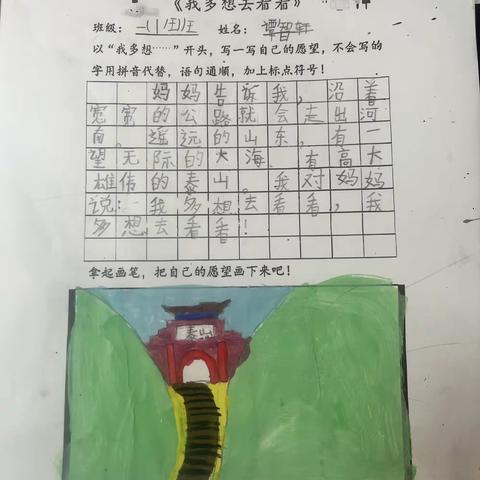 《我多想去看看》
班级： 姓名：谭智轩
以“我多想……”开头，写一写自己的愿望，不会写的
字用拼音代替，语句通顺，加上标点符号！
妈妈告诉我，沿着
宽宽的公路就会走出河
南。遥远的山东，有一
望无际的大海.有高大
雄伟的泰山。我对妈妈
说：我多想去看看，我
多想去看看！
拿起画笔，把自己的愿望画下来吧！
泰山